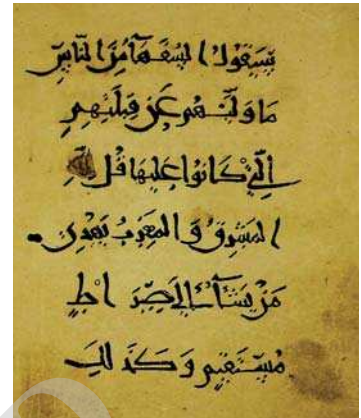 سَيَقُولُ السُّفَهَآءُ مِنَ النَّاسِ
مَا وَلَّىٰهُمْ عَن قِبْلَتِهِمُ
الَّتِى كَانُوا عَلَيْهَا قُل لِّلَّهِ
الْمَشْرِقُ وَالْمَغْرِبُ يَهْدِى
مَن يَشَآءُ إِلَىٰ صِرَاطٍ
مُّسْتَقِيمٍ وَكَذَٰلِكَ